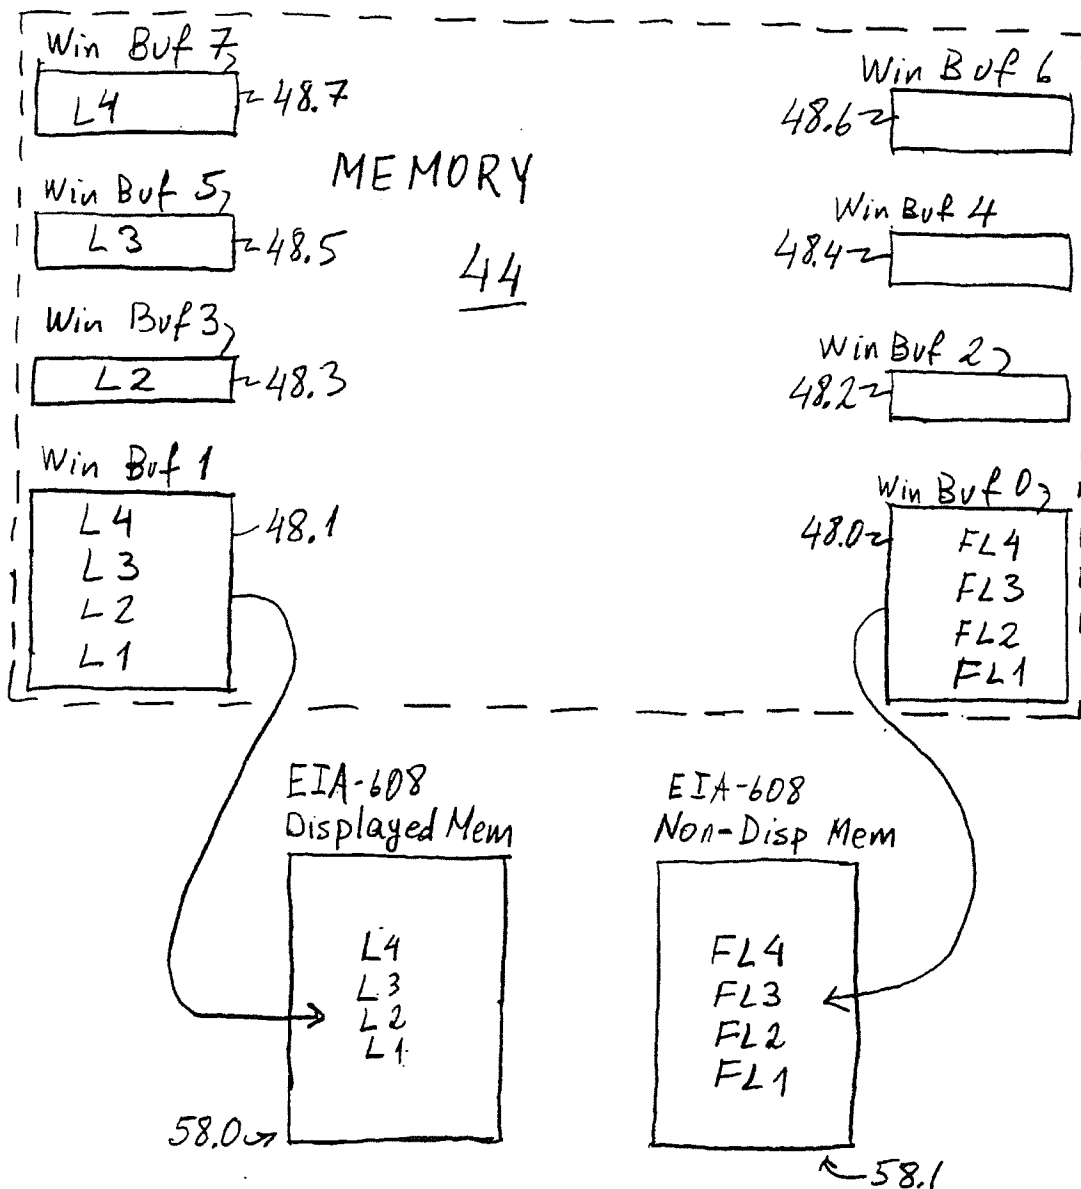 Win Buf 7
L4
48.7
Win Buf 6
48.6
MEMORY
44
Win Buf 5
L3
48.5
Win Buf 4
48.4
Win Buf 3
L2
48.3
Win Buf 2
48.2
Win Buf 1
L4
L3
L2
L1
48.1
Win Buf 0
48.0
FL4
FL3
FL2
FL1
EIA-608
Displayed Mem
L4
L3
L2
L1
58.0
EIA-608
Non-Disp Mem
FL4
FL3
FL2
FL1
58.1